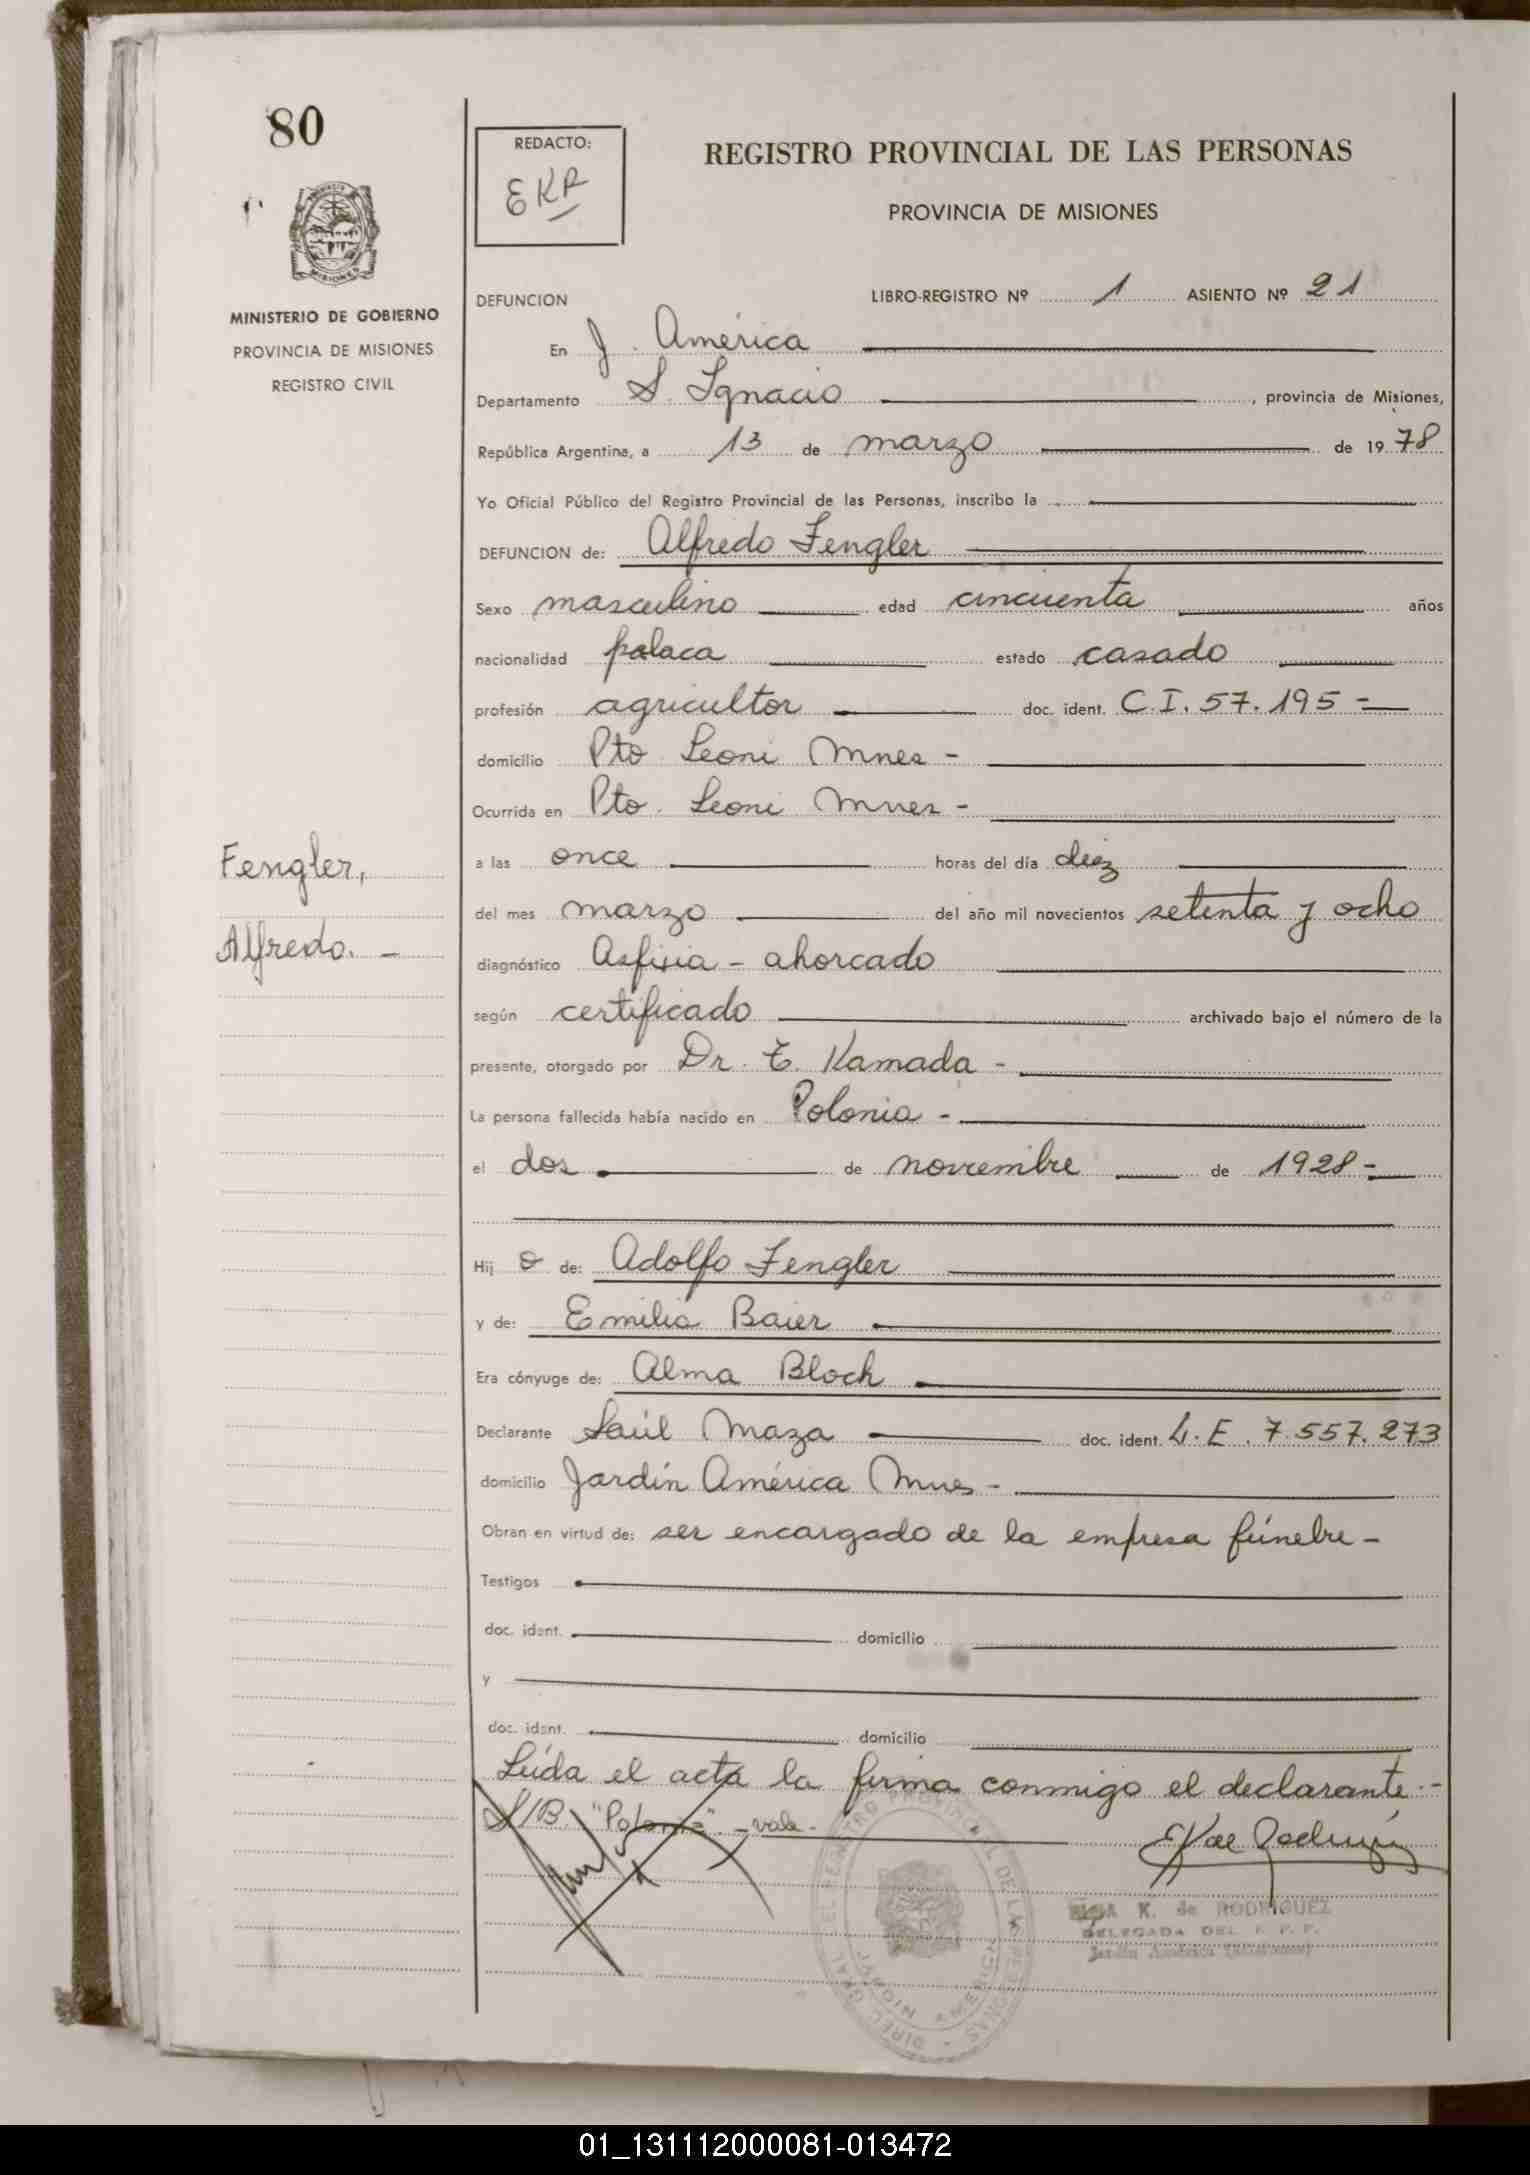 80
REDACTO:
EKR
REGISTRO PROVINCIAL DE LAS PERSONAS
PROVINCIA DE MISIONES
MINISTERIO DE GOBIERNO
PROVINCIA DE MISIONES
REGISTRO CIVIL
DEFUNCION LIBRO-REGISTRO Nº 1 ASIENTO Nº 21
En J. América
Departamento S. Ignacio, provincia de Misiones,
República Argentina, a 13 de marzo de 1978
Yo Oficial Público del Registro Provincial de las Personas, inscribo la
DEFUNCION de: Alfredo Fengler
Sexo masculino edad cincuenta años
nacionalidad polaca estado casado
profesión agricultor doc. ident. C.I. 57.195 =
domicilio Pto Leoni Mnes -
Ocurrida en Pto. Leoni Mnes -
Fengler,
Alfredo. -
a las once horas del día diez
del mes marzo del año mil novecientos setenta y ocho
diagnóstico Asfixia - ahorcado
según certificado archivado bajo el número de la
presente, otorgado por Dr. T. Kamada -
La persona fallecida había nacido en Polonia -
el dos de noviembre de 1928 =
Hij o de: Adolfo Fengler
y de: Emilia Baier
Era cónyuge de: Alma Bloch
Declarante Saúl Maza doc. ident. L.E. 7.557.273
domicilio Jardín América Mnes -
Obran en virtud de: ser encargado de la empresa fúnebre -
Testigos
doc. ident. domicilio
y
doc. ident. domicilio
Leída el acta la firma conmigo el declarante. -
S/B. "Polonia" - vale -
DIREC. GRAL. DEL REGISTRO PROVINCIAL DE LAS PERSONAS
JARDIN AMERICA
ELSA K. de RODRIGUEZ
DELEGADA DEL R. P. P.
Jardín América (Misiones)
01_131112000081-013472